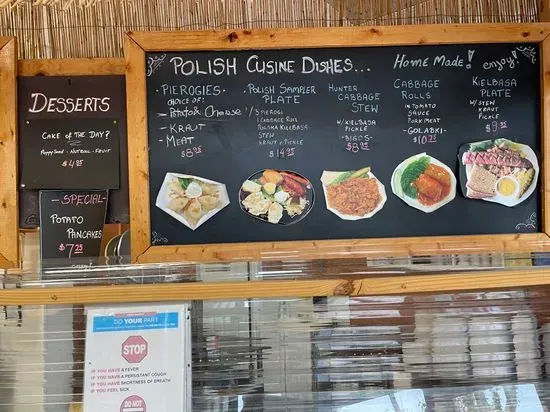 POLISH CUSINE DISHES...
HOME MADE! enjoy!
-PIEROGIES-
CHOICE OF:
-POTATOE CHEESE
-KRAUT
-MEAT
$8.95
-POLISH SAMPLER
PLATE
3 PIEROGI
1 CABBAGE ROLL
POLSKA KIELBASA
STEW
KRAUT/PICKLE
$14.95
HUNTER
CABBAGE
STEW
W/KIELBASA
PICKLE
-BIGOS-
$8.95
CABBAGE
ROLLS
IN TOMATO
SAUCE
PORK MEAT
-GOLABKI-
$10.75
KIELBASA
PLATE
W/STEW
KRAUT
PICKLE
$9.95
DESSERTS
CAKE OF THE DAY?
POPPYSEED - NUTROLL - FRUIT
$4.95
-SPECIAL-
POTATO
PANCAKES
$7.25
DO YOUR PART
STOP
IF YOU HAVE A FEVER
IF YOU HAVE A PERSISTANT COUGH
IF YOU HAVE SHORTNESS OF BREATH
IF YOU FEEL SICK
DO NOT